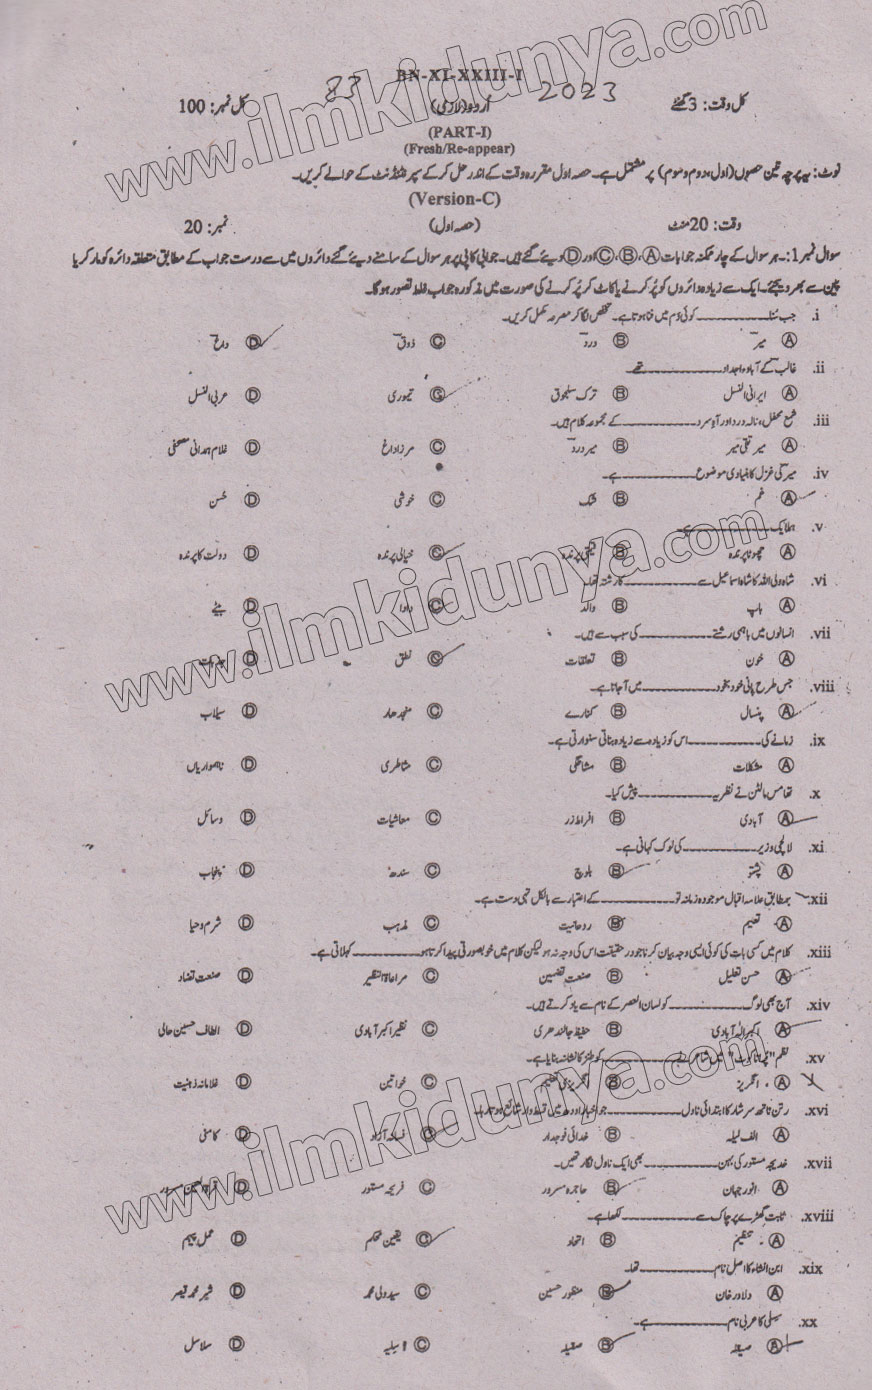 BN-XI-XXIII-I
83 2023
کل وقت: 3 گھنٹے اُردو (لازمی) کل نمبر: 100
(PART-I)
(Fresh/Re-appear)
نوٹ: یہ پرچہ تین حصوں (اول، دوم و سوم) پر مشتمل ہے۔ حصہ اول مقررہ وقت کے اندر حل کر کے سپرنٹنڈنٹ کے حوالے کریں۔
(Version-C)
وقت: 20 منٹ (حصہ اول) نمبر: 20
سوال نمبر 1:۔ ہر سوال کے چار ممکنہ جوابات A، B، C اور D دیئے گئے ہیں۔ جوابی کاپی پر ہر سوال کے سامنے دیئے گئے دائروں میں سے درست جواب کے مطابق متعلقہ دائرہ کو مارکر یا
پین سے بھر دیجئے۔ ایک سے زیادہ دائروں کو پُر کرنے یا کاٹ کر پُر کرنے کی صورت میں مذکورہ جواب غلط تصور ہوگا۔
i. جب سُنا ________ کوئی دم میں فنا ہوتا ہے۔ تخلص لگا کر مصرعہ مکمل کریں۔
A میر B درد C ذوق D داغ
ii. غالب کے آباؤ اجداد ________ تھے۔
A ایرانی النسل B ترک سلجوق C تیموری D عربی النسل
iii. شمع محفل، نالہ درد اور آہ سرد ________ کے مجموعہ کلام ہیں۔
A میر تقی میر B میر درد C مرزا داغ D غلام ہمدانی مصحفی
iv. میر کی غزل کا بنیادی موضوع ________ ہے۔
A غم B شک C خوشی D حُسن
v. ہما ایک ________ ہے۔
A چھوٹا پرندہ B قیمتی پرندہ C خیالی پرندہ D دولت کا پرندہ
vi. شاہ ولی اللہ کا شاہ اسماعیل سے ________ کا رشتہ تھا۔
A باپ B والد C دادا D بیٹے
vii. انسانوں میں باہمی رشتے ________ کی سبب سے ہیں۔
A خون B تعلقات C نطق D
viii. جس طرح پانی خود بخود ________ میں آ جاتا ہے۔
A پنسال B کنارے C منجدھار D سیلاب
ix. زمانے کی ________ اس کو زیادہ سے زیادہ بناتی سنوارتی ہے۔
A مشکلات B مشاطگی C مشاطری D ناہمواریاں
x. تھامس مالتھس نے نظریہ ________ پیش کیا۔
A آبادی B افراط زر C معاشیات D وسائل
xi. لالچی وزیر ________ کی لوک کہانی ہے۔
A پشتو B بلوچ C سندھ D پنجاب
xii. بمطابق علامہ اقبال موجودہ زمانہ تو ________ کے اعتبار سے بالکل تہی دست ہے۔
A تعلیم B روحانیت C مذہب D شرم و حیا
xiii. کلام میں کسی بات کی کوئی ایسی وجہ بیان کرنا جو در حقیقت اس کی وجہ نہ ہو لیکن کلام میں خوبصورتی پیدا کرتا ہو ________ کہلاتی ہے۔
A حسن تعلیل B صنعت تضمین C مراعاۃ النظیر D صنعت تضاد
xiv. آج بھی لوگ ________ کو لسان العصر کے نام سے یاد کرتے ہیں۔
A اکبر الٰہ آبادی B حفیظ جالندھری C نظیر اکبر آبادی D الطاف حسین حالی
xv. نظم " میں شاعر نے ________ کو طنز کا نشانہ بنایا ہے۔
A انگریز B انگریزی تعلیم C خواتین D غلامانہ ذہنیت
xvi. رتن ناتھ سرشار کا ابتدائی ناول ________ جو اخبار اودھ میں قسط وار شائع ہوتا رہا۔
A الف لیلہ B خدائی فوجدار C فسانہ آزاد D کامنی
xvii. خدیجہ مستور کی بہن ________ بھی ایک ناول نگار تھیں۔
A انور جہان B حاجرہ مسرور C فریحہ مستور D قرۃ العین مسرور
xviii. ثابت گھڑے پر چاک سے ________ لکھا ہے۔
A تنظیم B اتحاد C یقین محکم D عمل پیہم
xix. ابن انشاء کا اصل نام ________ تھا۔
A دلاور خان B منظور حسین C سید ولی محمد D شیر محمد قیصر
xx. سسلی کا عربی نام ________ ہے۔
A B صقلیہ C D سلاسل
www.ilmkidunya.com
www.ilmkidunya.com
www.ilmkidunya.com